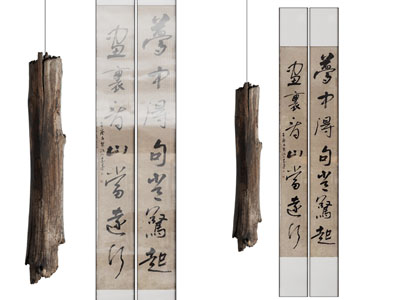 夢中得句常驚起
畫裏看山當遠行
夢中得句常驚起
畫裏看山當遠行